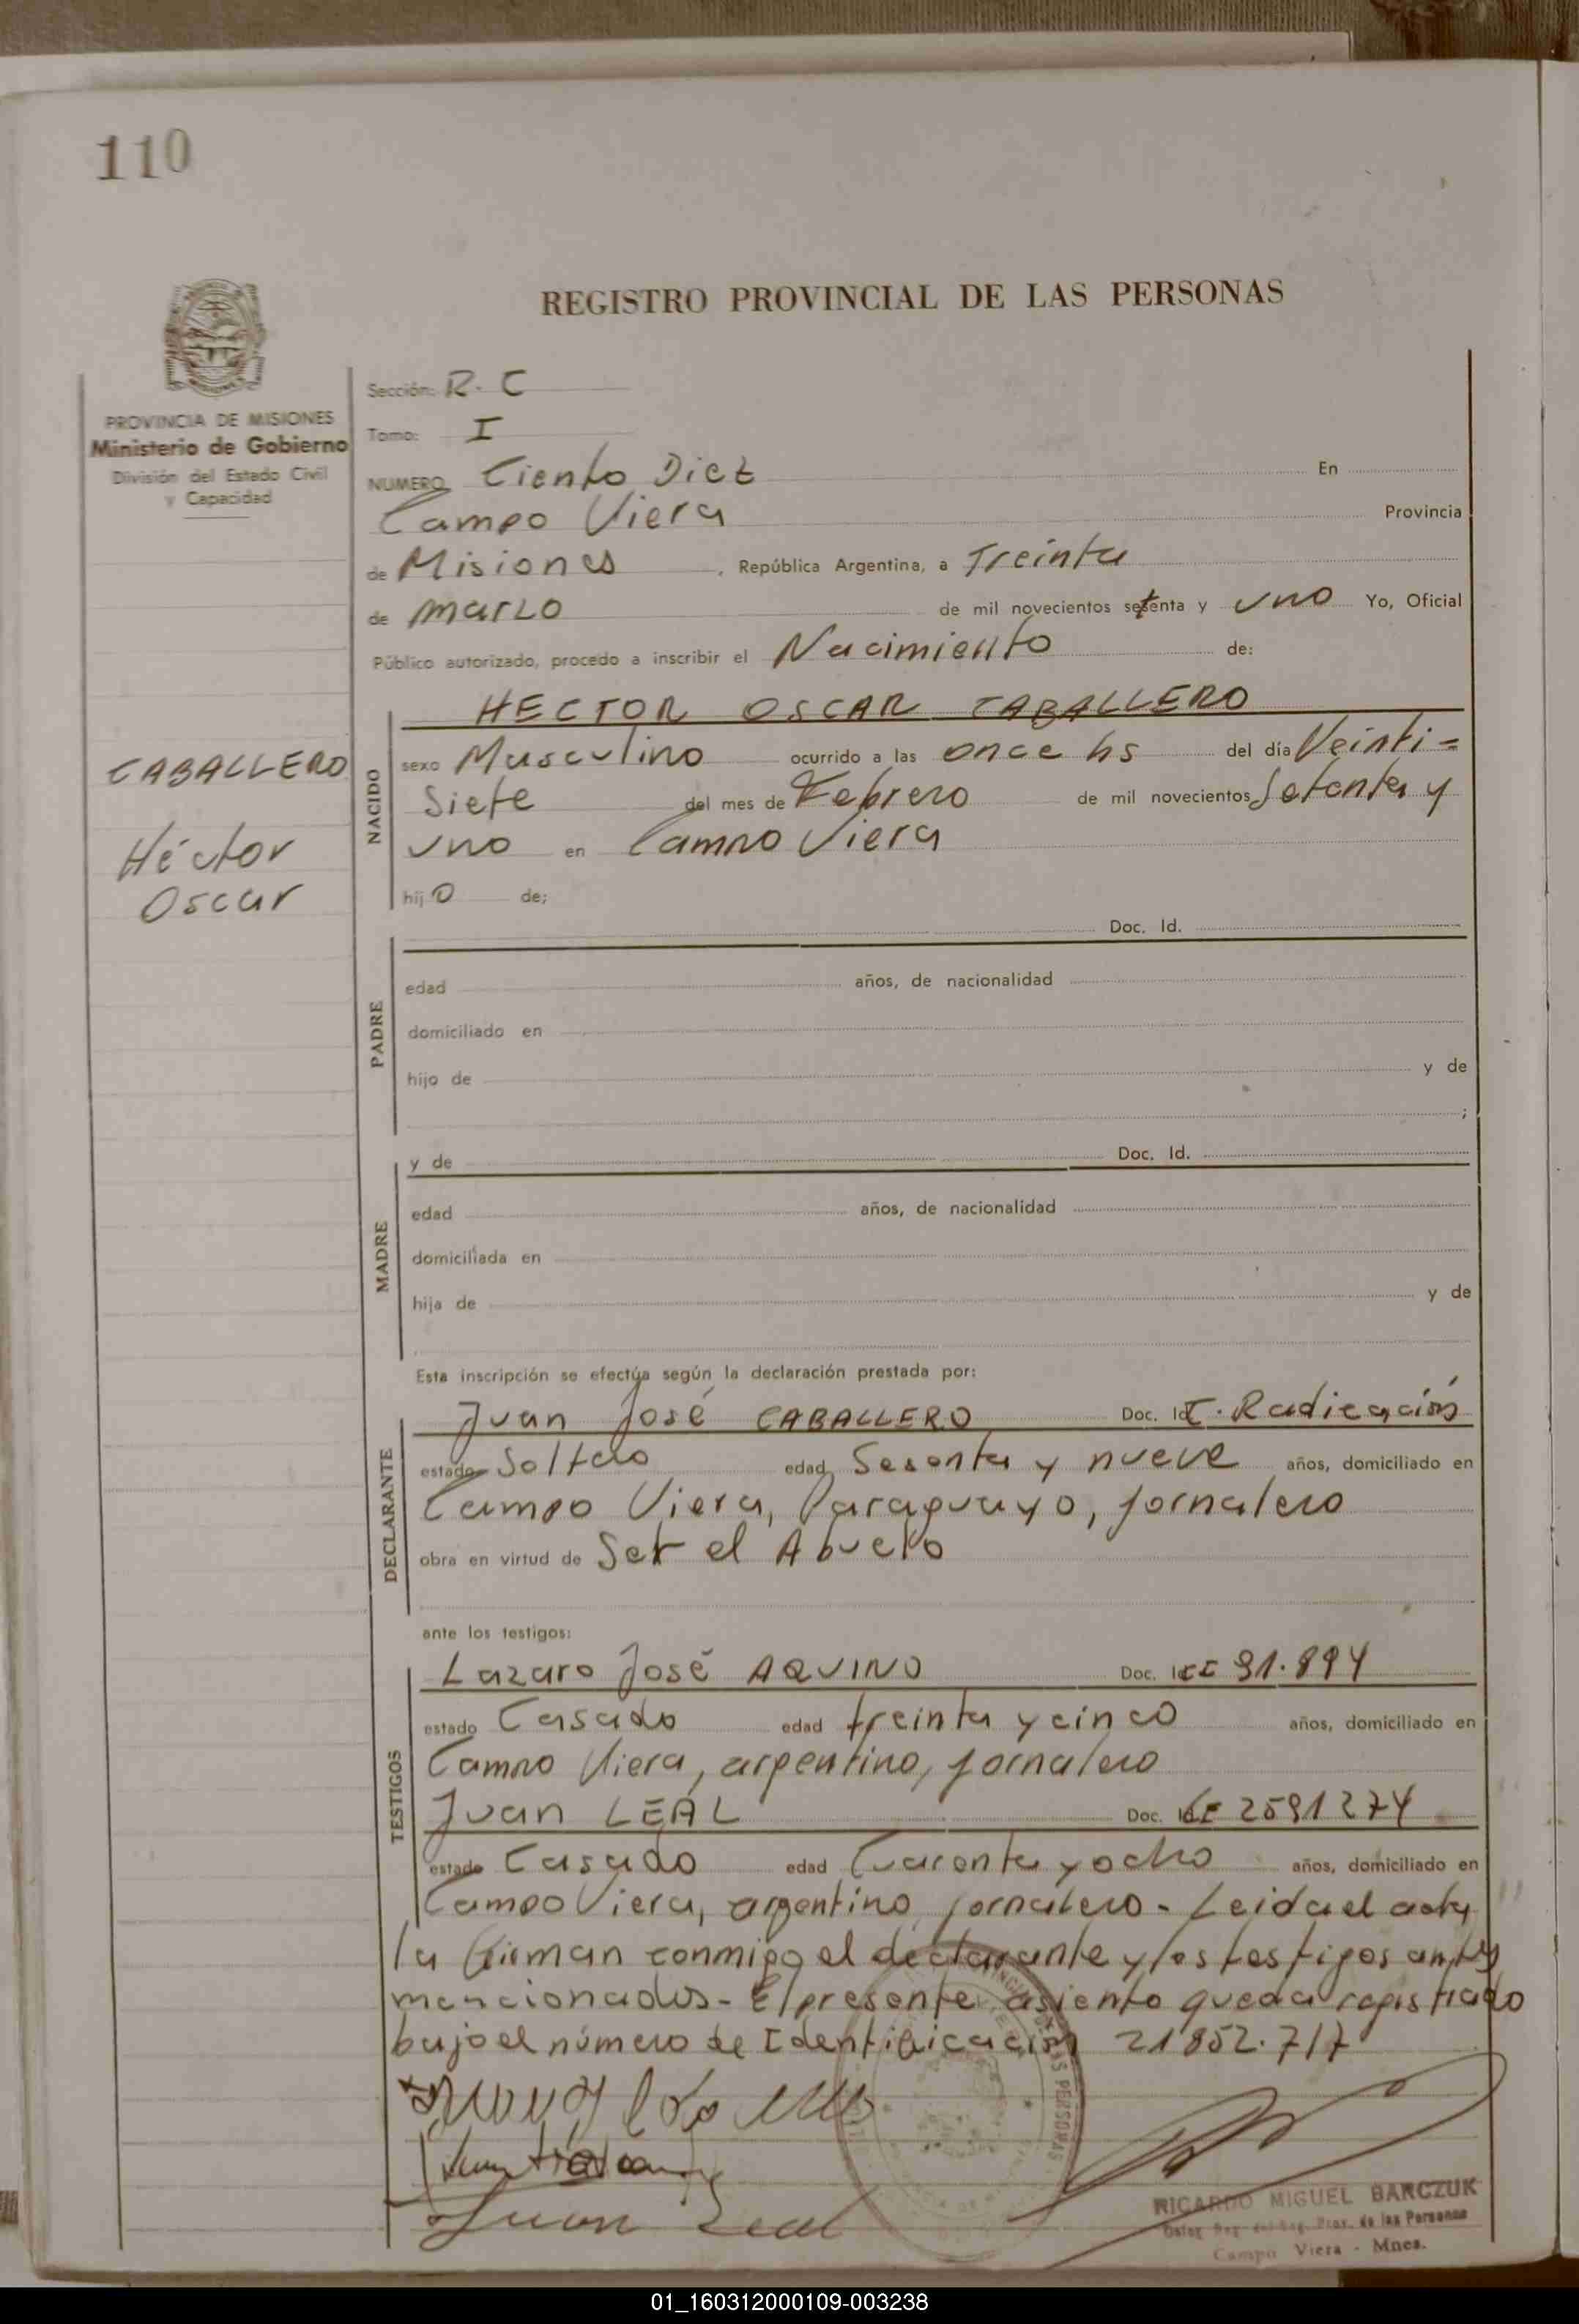 110
REGISTRO PROVINCIAL DE LAS PERSONAS
PROVINCIA DE MISIONES
Ministerio de Gobierno
División del Estado Civil
y Capacidad
Sección: R. C
Tomo: I
NUMERO Ciento Diez En
Campo Viera Provincia
de Misiones, República Argentina, a Treinta
de marzo de mil novecientos setenta y uno Yo, Oficial
Público autorizado, procedo a inscribir el Nacimiento de:
CABALLERO
Héctor
Oscar
NACIDO
HECTOR OSCAR CABALLERO
sexo Masculino ocurrido a las once hs del día Veinti=
Siete del mes de Febrero de mil novecientos Setenta y
uno en Campo Viera
hijo de;
PADRE
Doc. Id.
edad años, de nacionalidad
domiciliado en
hijo de y de
;
MADRE
y de Doc. Id.
edad años, de nacionalidad
domiciliada en
hija de y de
Esta inscripción se efectúa según la declaración prestada por:
DECLARANTE
Juan José CABALLERO Doc. Id. Radicación
estado Soltero edad Sesenta y nueve años, domiciliado en
Campo Viera, Paraguayo, jornalero
obra en virtud de Ser el Abuelo
ante los testigos:
TESTIGOS
Lazaro José AQUINO Doc. Id
estado Casado edad treinta y cinco años, domiciliado en
Campo Viera, argentino, jornalero
Juan LEAL Doc. 2591274
estado Casado edad Cuarenta y ocho años, domiciliado en
Campo Viera, argentino jornalero - Leida el acta
la firman conmigo el declarante y los testigos antes
mencionados - El presente asiento queda registrado
bajo el número de Identificación 21852.717
Juan Leal
RICARDO MIGUEL BARCZUK
Prov. de las Personas
Campo Viera - Mnes.
01_160312000109-003238